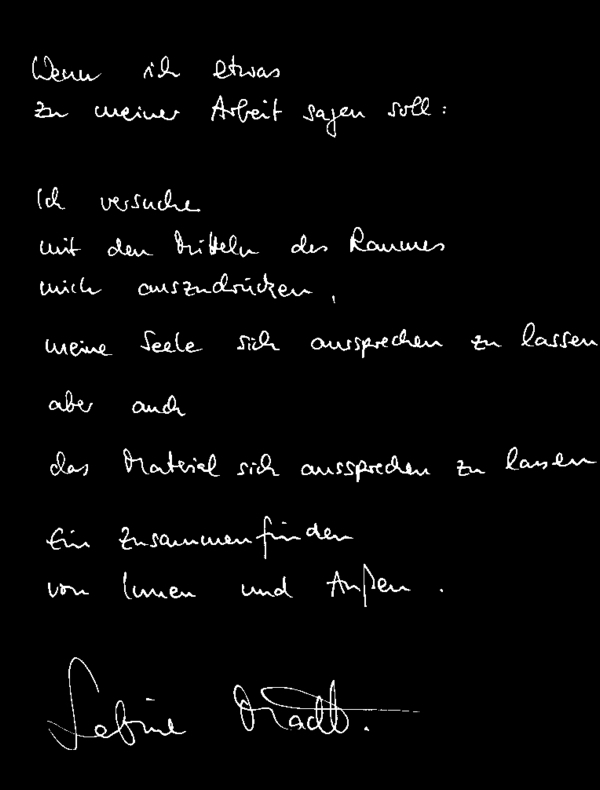 Wenn ich etwas
zu meiner Arbeit sagen soll:
Ich versuche
mit den Mitteln des Raumes
mich auszudrücken,
meine Seele sich aussprechen zu lassen
aber auch
das Material sich aussprechen zu lassen
Ein Zusammenfinden
von Innen und Außen.
Sabine